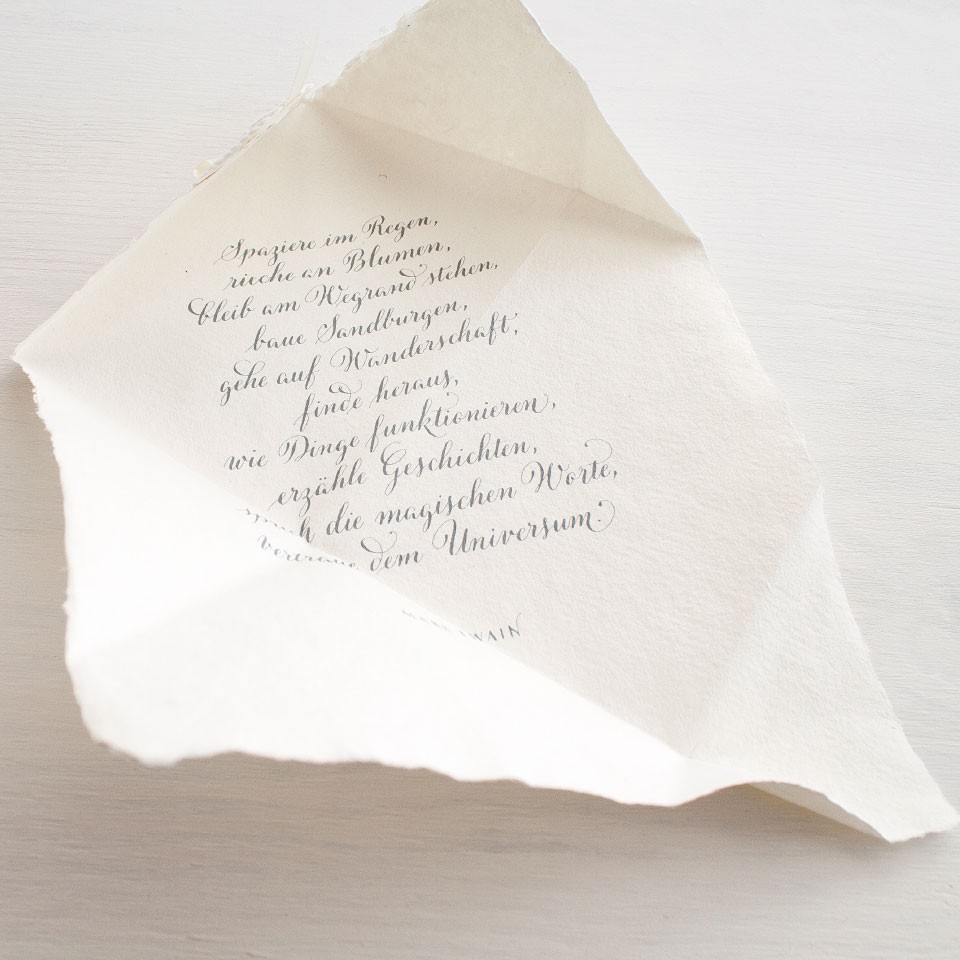 Spaziere im Regen,
rieche an Blumen,
bleib am Wegrand stehen,
baue Sandburgen,
gehe auf Wanderschaft,
finde heraus,
wie Dinge funktionieren,
erzähle Geschichten,
sprich die magischen Worte,
vertraue dem Universum.
MARK TWAIN